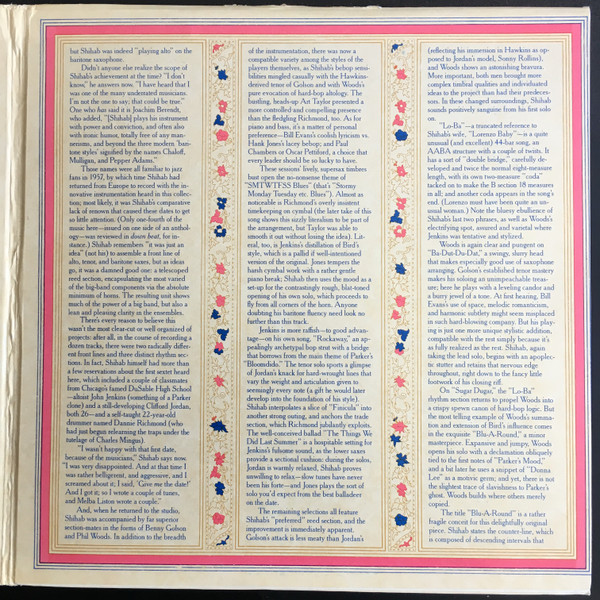 but Shihab was indeed "playing alto" on the
baritone saxophone.
Didn't anyone else realize the scope of
Shihab's achievement at the time? "I don't
know," he answers now. "I have heard that I
was one of the many underrated musicians.
I'm not the one to say; that could be true."
One who has said it is Joachim Berendt,
who added, "[Shihab] plays his instrument
with power and conviction, and often also
with stoic humor, totally free of any man-
nerisms, and beyond the three modern 'bari-
tone styles' signified by the names Chaloff,
Mulligan, and Pepper Adams."
Those names were all familiar to jazz
fans in 1957, by which time Shihab had
returned from Europe to record with the in-
novative instrumentation heard in this collec-
tion; most likely, it was Shihab's comparative
lack of renown that caused these dates to get
so little attention. (Only one-fourth of the
music here—issued on one side of an anthol-
ogy—was reviewed in down beat, for in-
stance.) Shihab remembers "it was just an
idea" (not his) to assemble a front line of
alto, tenor, and baritone saxes, but as ideas
go, it was a damned good one: a telescoped
reed section, encapsulating the most varied
of the big-band components via the absolute
minimum of horns. The resulting unit shows
much of the power of a big band, but also a
lean and pleasing clarity in the ensembles.
There's every reason to believe this
wasn't the most clear-cut or well organized of
projects: after all, in the course of recording a
dozen tracks, there were two radically differ-
ent front lines and three distinct rhythm sec-
tions. In fact, Shihab himself had more than
a few reservations about the first sextet heard
here, which included a couple of classmates
from Chicago's famed DuSable High School
—altoist John Jenkins (something of a Parker
clone) and a still-developing Clifford Jordan,
both 26—and a self-taught 22-year-old
drummer named Dannie Richmond (who
had just begun relearning the traps under the
tutelage of Charles Mingus).
"I wasn't happy with that first date,
because of the musicians," Shihab says now.
"I was very disappointed. And at that time I
was rather belligerent, and aggressive, and I
screamed about it; I said, 'Give me the date!'
And I got it; so I wrote a couple of tunes,
and Melba Liston wrote a couple."
And, when he returned to the studio,
Shihab was accompanied by far superior
section-mates in the forms of Benny Golson
and Phil Woods. In addition to the breadth
of the instrumentation, there was now a
compatible variety among the styles of the
players themselves, as Shihab's bebop sensi-
bilities mingled casually with the Hawkins-
derived tenor of Golson and with Woods'
pure evocation of hard-bop altology. The
bustling, heads-up Art Taylor presented a
more controlled and compelling presence
than the fledgling Richmond, too. As for
piano and bass, it's a matter of personal
preference—Bill Evans's coolish lyricism vs.
Hank Jones's lacey bebop; and Paul
Chambers or Oscar Pettiford, a choice that
every leader should be so lucky to have.
These sessions' lively, supersax timbres
burst open the no-nonsense theme of
"SMTWTFSS Blues" (that's "Stormy
Monday Tuesday etc. Blues"). Almost as
noticeable is Richmond's overly insistent
timekeeping on cymbal (the later take of this
song shows this sizzly literalism to be part of
the arrangement, but Taylor was able to
smooth it out without losing the idea). Lit-
eral, too, is Jenkins's distillation of Bird's
style, which is a pallid if well-intentioned
version of the original. Jones tempers the
harsh cymbal work with a rather gentle
piano break; Shihab then uses the mood as a
set-up for the contrastingly rough, blat-toned
opening of his own solo, which proceeds to
fly from all corners of the horn. Anyone
doubting his baritone fluency need look no
further than this track.
Jenkins is more raffish—to good advan-
tage—on his own song, "Rockaway," an ap-
pealingly archetypal bop strut with a bridge
that borrows from the main theme of Parker's
"Bloomdido." The tenor solo sports a glimpse
of Jordan's knack for hard-wrought lines that
vary the weight and articulation given to
seemingly every note (a gift he would later
develop into the foundation of his style).
Shihab interpolates a slice of "Finicula" into
another strong outing, and anchors the trade
section, which Richmond jubilantly exploits.
The well-conceived ballad "The Things We
Did Last Summer" is a hospitable setting for
Jenkins's fulsome sound, as the lower saxes
provide a sectional cushion; during the solos,
Jordan is warmly relaxed, Shihab proves
unwilling to relax—slow tunes have never
been his forte—and Jones plays the sort of
solo you'd expect from the best balladeer
on the date.
The remaining selections all feature
Shihab's "preferred" reed section, and the
improvement is immediately apparent.
Golson's attack is less meaty than Jordan's
(reflecting his immersion in Hawkins as op-
posed to Jordan's model, Sonny Rollins),
and Woods shows an astonishing bravura.
More important, both men brought more
complex timbral qualities and individualized
ideas to the project than had their predeces-
sors. In these changed surroundings, Shihab
sounds positively sanguine from his first solo
on.
"Lo-Ba"—a truncated reference to
Shihab's wife, "Lorenzo Baby"—is a quite
unusual (and excellent) 44-bar song, an
AABA structure with a couple of twists. It
has a sort of "double bridge," carefully de-
veloped and twice the normal eight-measure
length, with its own two-measure "coda"
tacked on to make the B section 18 measures
in all; and another coda appears in the song's
end. (Lorenzo must have been quite an un-
usual woman.) Note the bluesy ebullience of
Shihab's last two phrases, as well as Woods's
electrifying spot, assured and varietal where
Jenkins was tentative and stylized.
Woods is again clear and pungent on
"Ba-Dut-Du-Dat," a swingy, slurry head
that makes especially good use of saxophone
arranging. Golson's established tenor mastery
makes his soloing an unimpeachable treas-
ure; here he plays with a leveling candor and
a burry jowel of a tone. At first hearing, Bill
Evans's use of space, melodic romanticism,
and harmonic subtlety might seem misplaced
in such hard-blowing company. But his play-
ing is just one more unique stylistic addition,
compatible with the rest simply because it's
as fully realized as the rest. Shihab, again
taking the lead solo, begins with an apoplec-
tic stutter and retains that nervous edge
throughout, right down to the fancy little
footwork of his closing riff.
On "Sugar Dugar," the "Lo-Ba"
rhythm section returns to propel Woods into
a crispy spewn canon of hard-bop logic. But
the most telling example of Woods's summa-
tion and extension of Bird's influence comes
in the exquisite "Blu-A-Round," a minor
masterpiece. Expansive and jumpy, Woods
opens his solo with a declamation obliquely
tied to the first notes of "Parker's Mood,"
and a bit later he uses a snippet of "Donna
Lee" as a motivic germ; and yet, there is not
the slightest trace of slavishness to Parker's
ghost. Woods builds where others merely
copied.
The title "Blu-A-Round" is a rather
fragile conceit for this delightfully original
piece. Shihab states the counter-line, which
is composed of descending intervals that